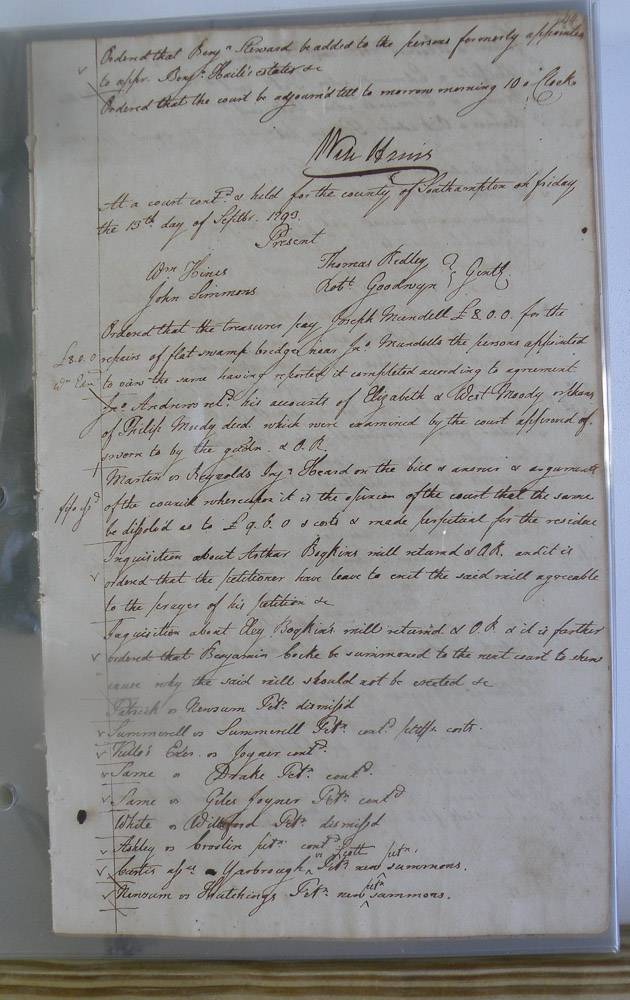 Ordered that Benjn Steward be added to the persons formerly appointed
to appr. Benjn Hails estate &c
Ordered that the court be adjourn'd till to morrow morning 10 o'Clock
Will Hines
At a court contd & held for the county of Southampton on friday
the 13th day of Septbr. 1793.
Present
Wm Hines Thomas Ridley
John Simmons Robt Goodwyn } Gentl.
Ordered that the treasurer pay Joseph Mundell £8.0.0. for the
£8.0.0 repairs of flat swamp bridge near Jno Mundells the persons appointed
to view the same having reported it completed according to agreement
Jno Andrews retd. his accounts of Elizabeth & West Moody orphans
of Philip Moody decd. which were examined by the court approved of
sworn to by the gdn. & O.R.
Martin vs Reynolds Injn Heard on the bill & answer & arguments
of the council whereupon it is the opinion of the court that the same
be dissolvd as to £9.6.0 & costs & made perpetual for the residue
Inquisition about Arthur Boykins mill returnd & O.R. and it is
ordered that the petitioner have leave to erect the said mill agreeable
to the prayer of his petition &c
Inquisition about Eley Boykins mill returnd & O.R & it is further
ordered that Benjamin Cocke be summoned to the next court to shew
cause why the said mill should not be erected &c
Patrick vs Newsum Petn dismissd
Summerell vs Summerell Petn contd. pltffs costs.
Kello's Exes. vs Joyner contd.
Same vs Drake Petn. contd.
Same vs Giles Joyner Petn contd
White vs Williford Petn dismissd
Ashley vs petn. contd
Curtis assee Yarbrough vs Scott Petn. new petn. summons.
Newsum vs Hutchings Petn. new petn summons.